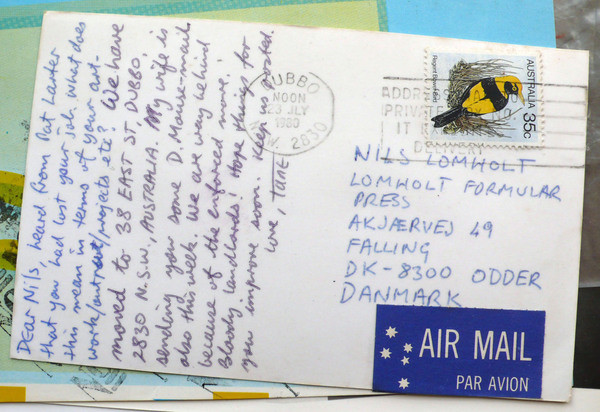 Dear Nils, heard from Pat Larter
that you had lost your job. What does
this mean in terms of your art-
work/projects etc? We have
moved to 38 EAST ST, DUBBO,
2830 N.S.W., AUSTRALIA. My wife is
sending you some D. Mouse-mail
also this week. We are way behind
because of the enforced move!
Bloody landlords! Hope things for
you improve soon. Keep us posted.
Love,
DUBBO
NOON
23 JLY
1980
N.S.W. 2830
ADDRE
PRIVATE
IT
DELIVERY
AUSTRALIA 35c
NILS LOMHOLT
LOMHOLT FORMULAR
PRESS
AKJÆRVEJ 49
FALLING
DK-8300 ODDER
DANMARK
AIR MAIL
PAR AVION